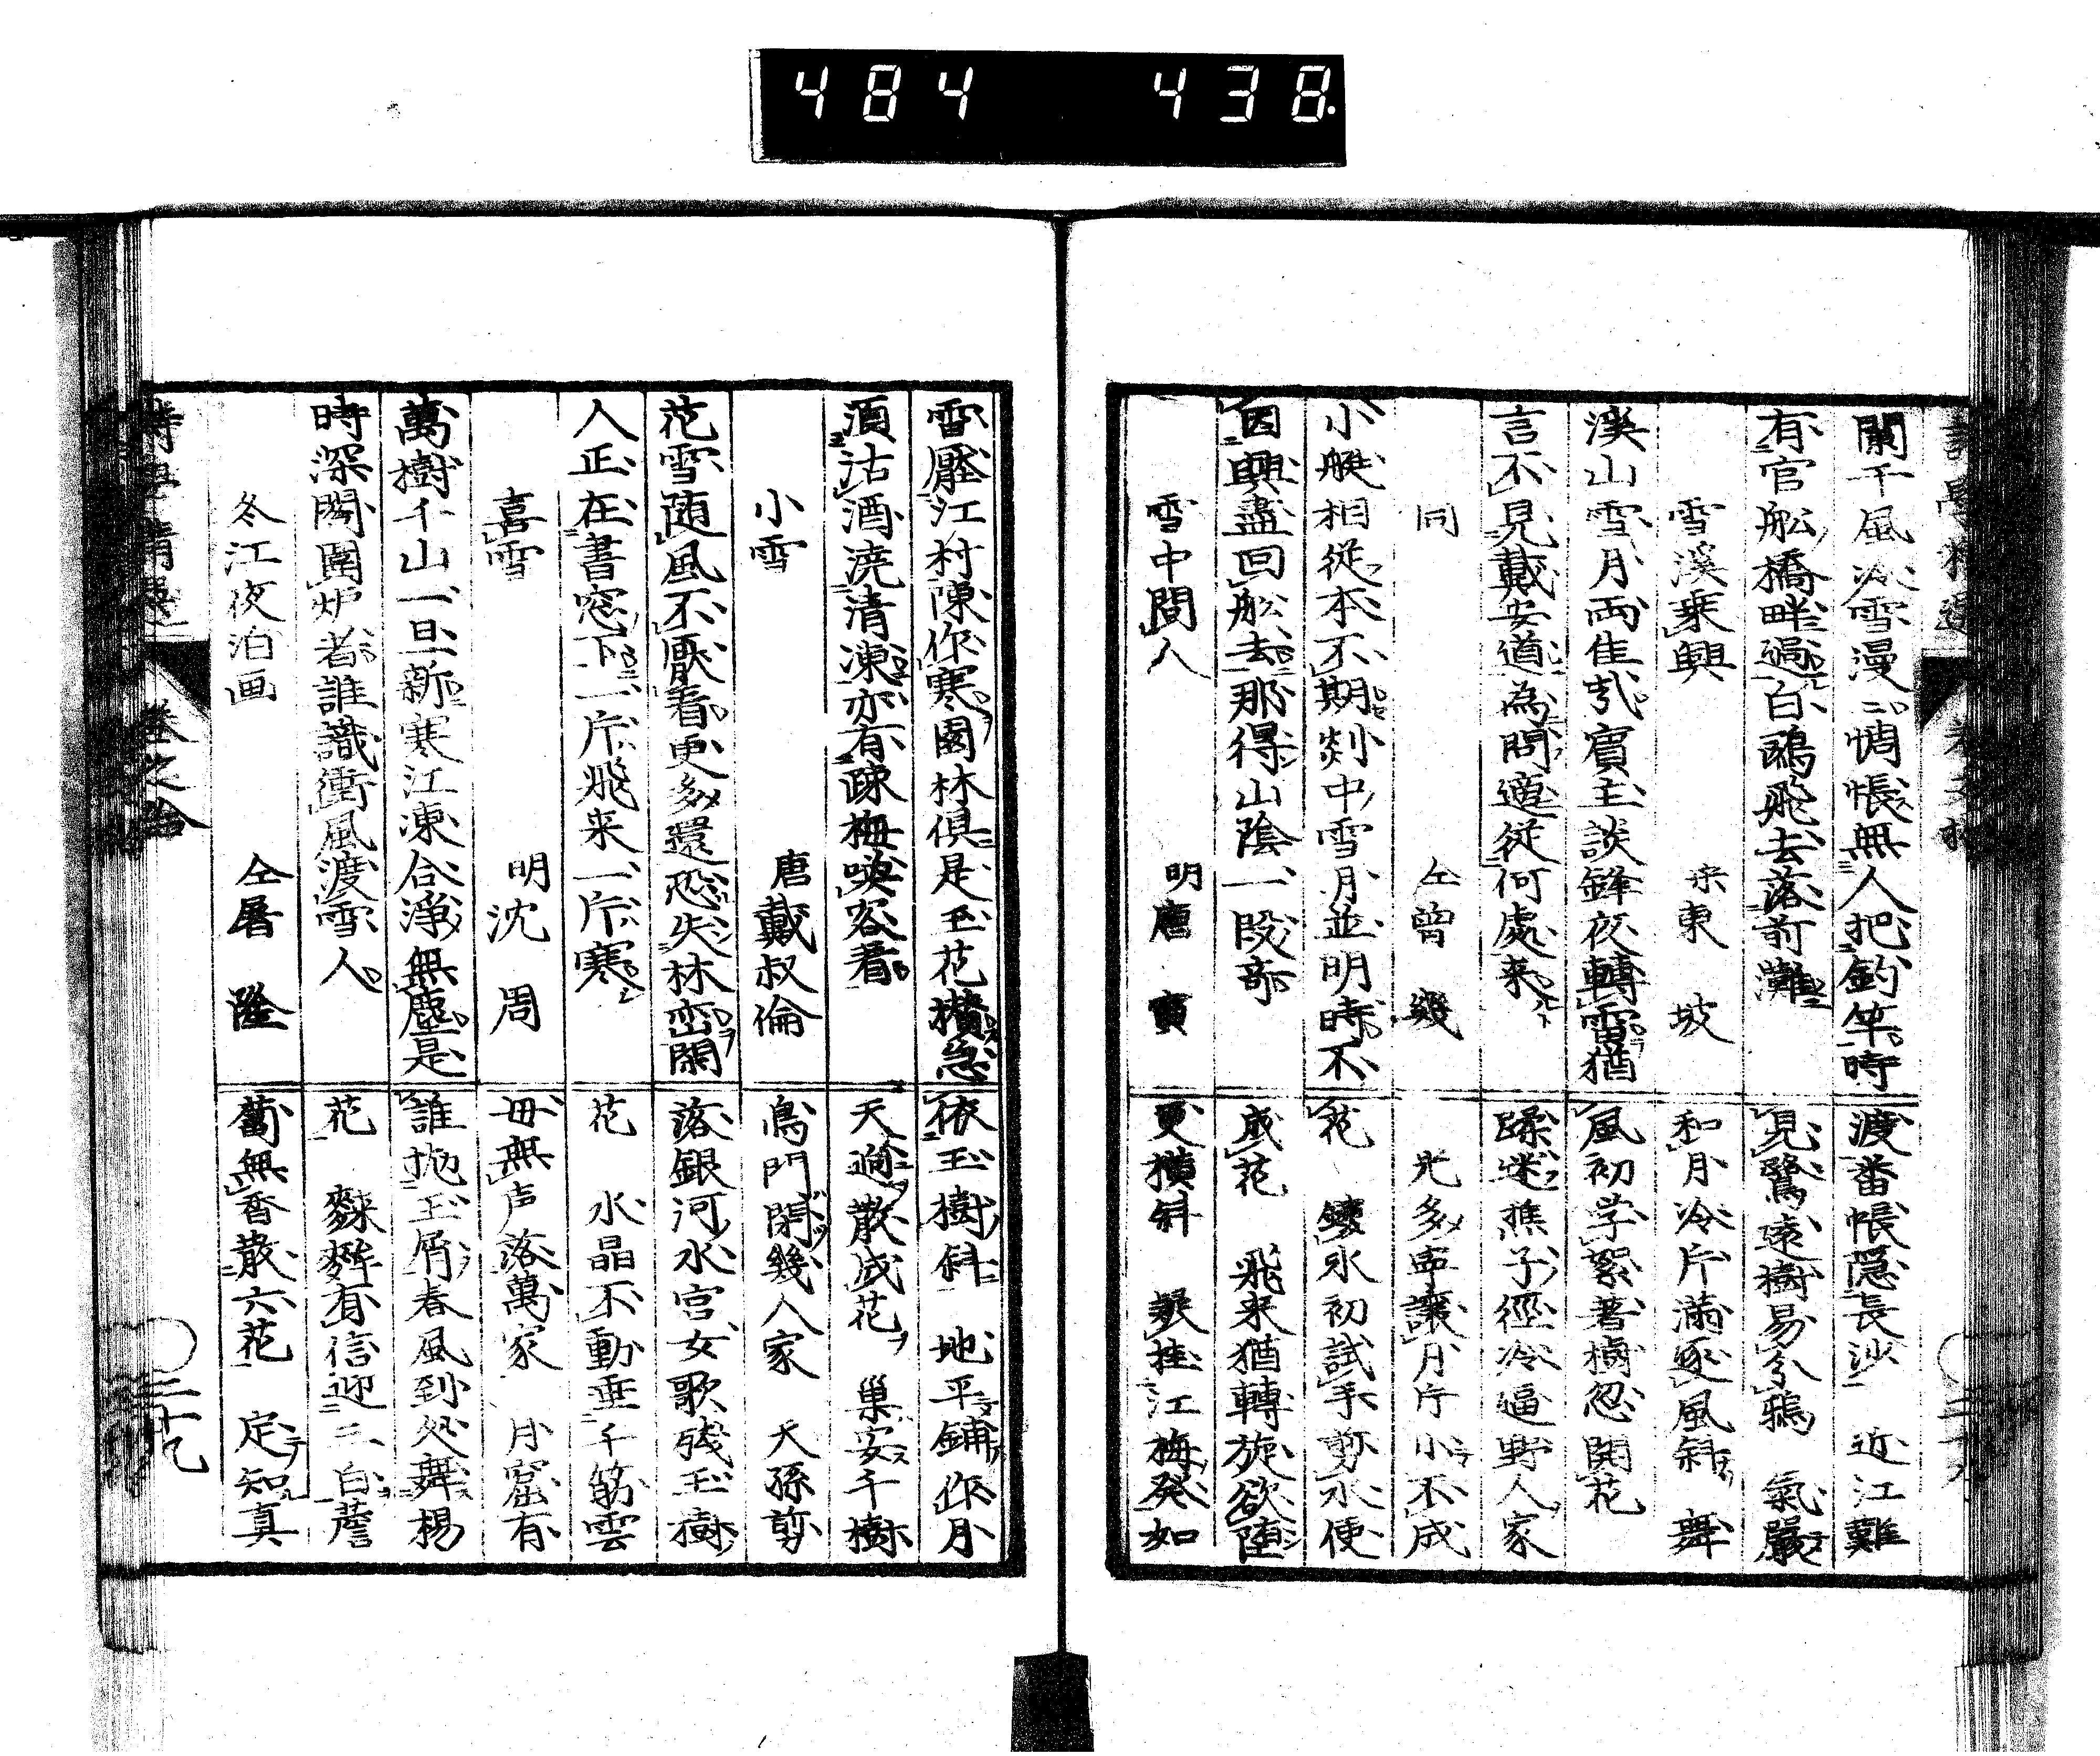 484 438.
闌干風冷雪漫ニ惆悵無人把釣竿時
有官舩橋畔過白鷗飛去落前灘
雪溪乗興 宋東坡
溪山雪月両佳哉賓主談鋒夜轉雷猶
言不見戴安道為問適從何處来
同 仝曽幾
小艇相從本不期剡中雪月並明時不
因興盡回舩去那得山陰一段奇
雪中間人 明唐寅
渡番帳隠長沙 近江難
見鷺遠樹易分鴉 氣嚴
和月冷片滿逐風斜 舞
風初学絮著樹忽開花
蹊迷樵子徑冷逼野人家
光多寧讓月片小不成
花 鏤氷初試手剪水便
成花 飛来猶轉旋欲堕
更横斜 疑挂江梅癸如
雪壓江村陳作寒園林倶是玉花攅急
須沽酒澆清凍亦有踈梅喚客看
小雪 唐戴叔倫
花雪随風不厭看更多還恐失林巒閑
人正在書窓下一片飛来一片寒
喜雪 明沈周
萬樹千山一旦新寒江凍合淨無塵是
時深閣圍炉者誰識衝風渡雪人
冬江夜泊画 仝屠隆
依玉樹斜 地平鋪作月
天逈散成花 巢安千樹
鳥門閑幾人家 天孫剪
落銀河水宮女歌残玉樹
花 水晶不動垂千筋雲
毋無声落萬家 月窟有
誰抛玉屑春風到処舞楊
花 麰麰有信迎三白薝
蔔無香散六花 定知真
卷之拾 三十九